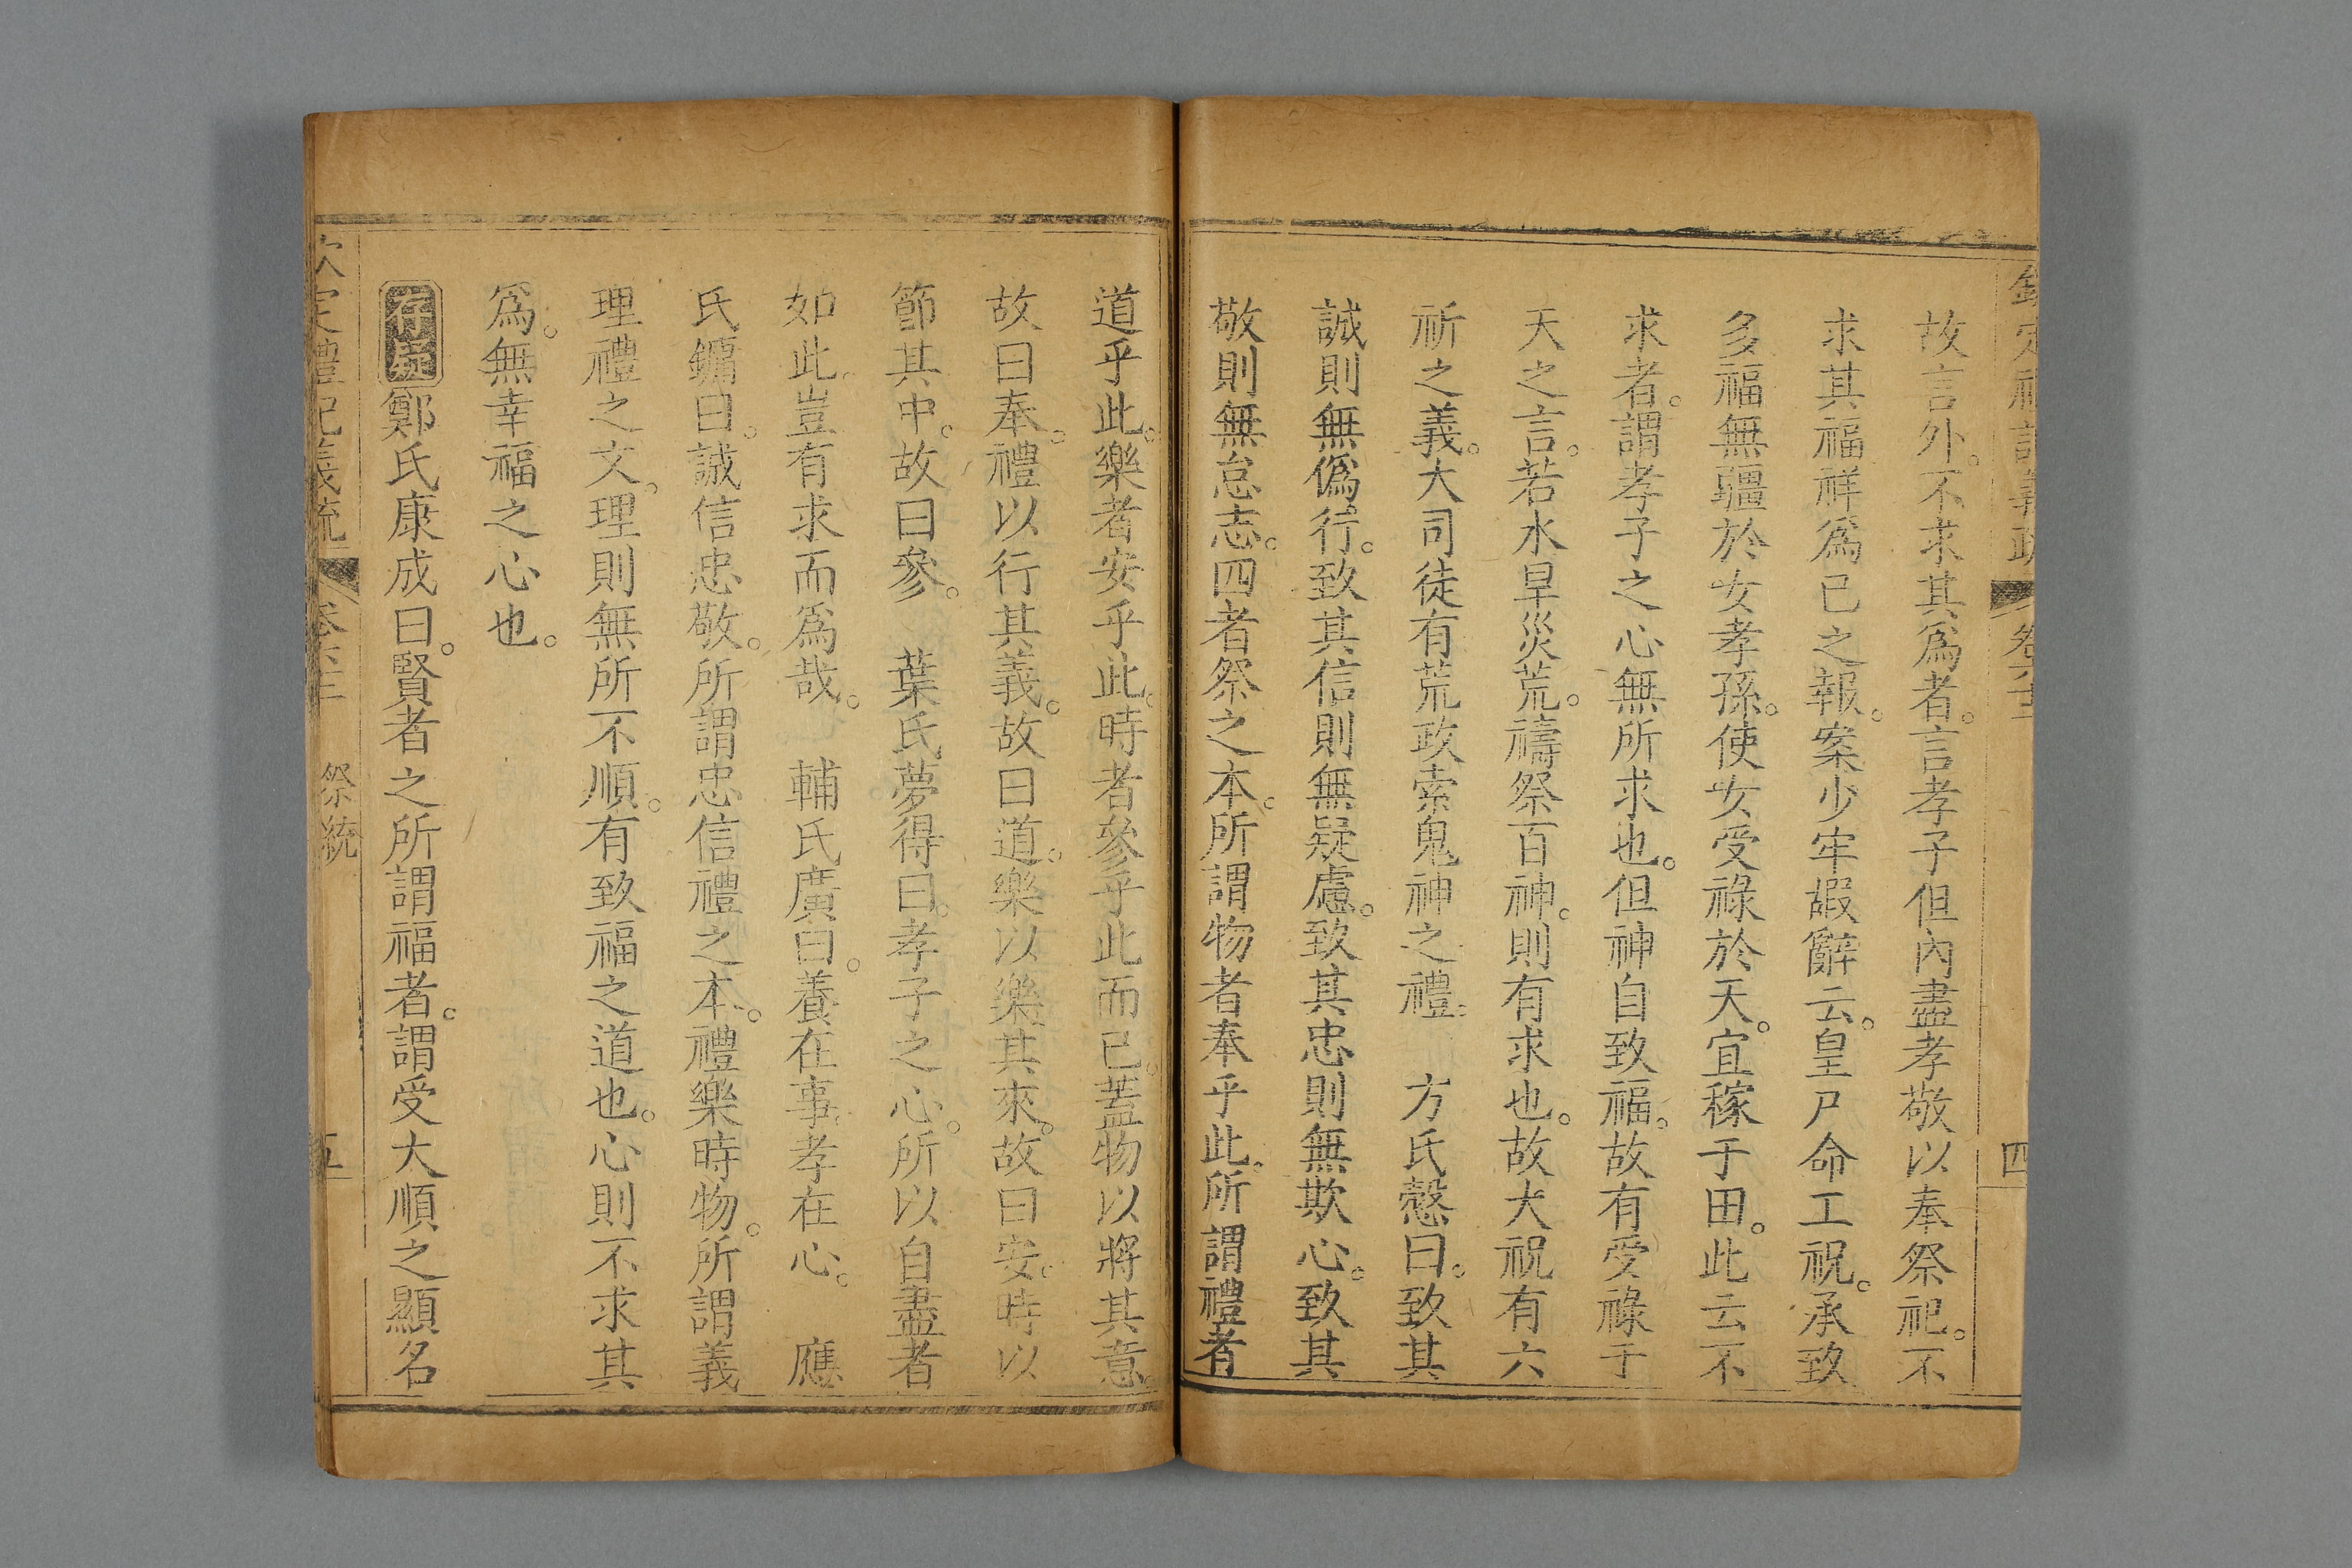 欽定禮記義疏 卷六十二 四
故言外。不求其爲者。言孝子但內盡孝敬以奉祭祀。不
求其福祥爲己之報。案少牢嘏辭云。皇尸命工祝。承致
多福無疆於女孝孫。使女受祿於天。宜稼于田。此云不
求者。謂孝子之心無所求也。但神自致福。故有受祿于
天之言。若水旱災荒。禱祭百神。則有求也。故大祝有六
祈之義。大司徒有荒政索鬼神之禮。 方氏慤曰。致其
誠則無僞行。致其信則無疑慮。致其忠則無欺心。致其
敬則無怠志。四者祭之本。所謂物者奉乎此。所謂禮者
道乎此。樂者安乎此。時者參乎此而已。蓋物以將其意。
故曰奉。禮以行其義。故曰道。樂以樂其來。故曰安。時以
節其中。故曰參。 葉氏夢得曰。孝子之心。所以自盡者
如此。豈有求而爲哉。 輔氏廣曰。養在事。孝在心。 應
氏鏞曰。誠信忠敬。所謂忠信禮之本。禮樂時物。所謂義
理禮之文。理則無所不順。有致福之道也。心則不求其
爲。無幸福之心也。
存疑鄭氏康成曰。賢者之所謂福者。謂受大順之顯名
欽定禮記義疏 祭統 五